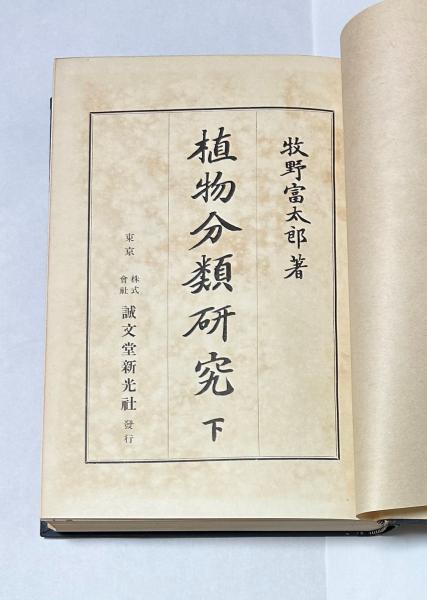 牧野富太郎著
植物分類研究 下
東京 株式會社 誠文堂新光社 發行